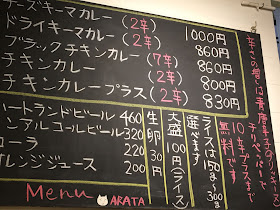 ーズキーマカレー(2辛) 1000円
ドライキーマカレー(2辛) 860円
ブラックチキンカレー(7辛) 860円
チキンカレー(2辛) 800円
チキンカレープラス(2辛) 830円
ハートランドビール 460
ンアルコールビール 320
コーラ 220
オレンジジュース 200
生卵30円
大盛100円(ライス)
選べます
ライスは150g〜300g
無料です
10辛プラスまで
テリペッパーで
辛さの調
は青唐辛子の
Menu ARATA